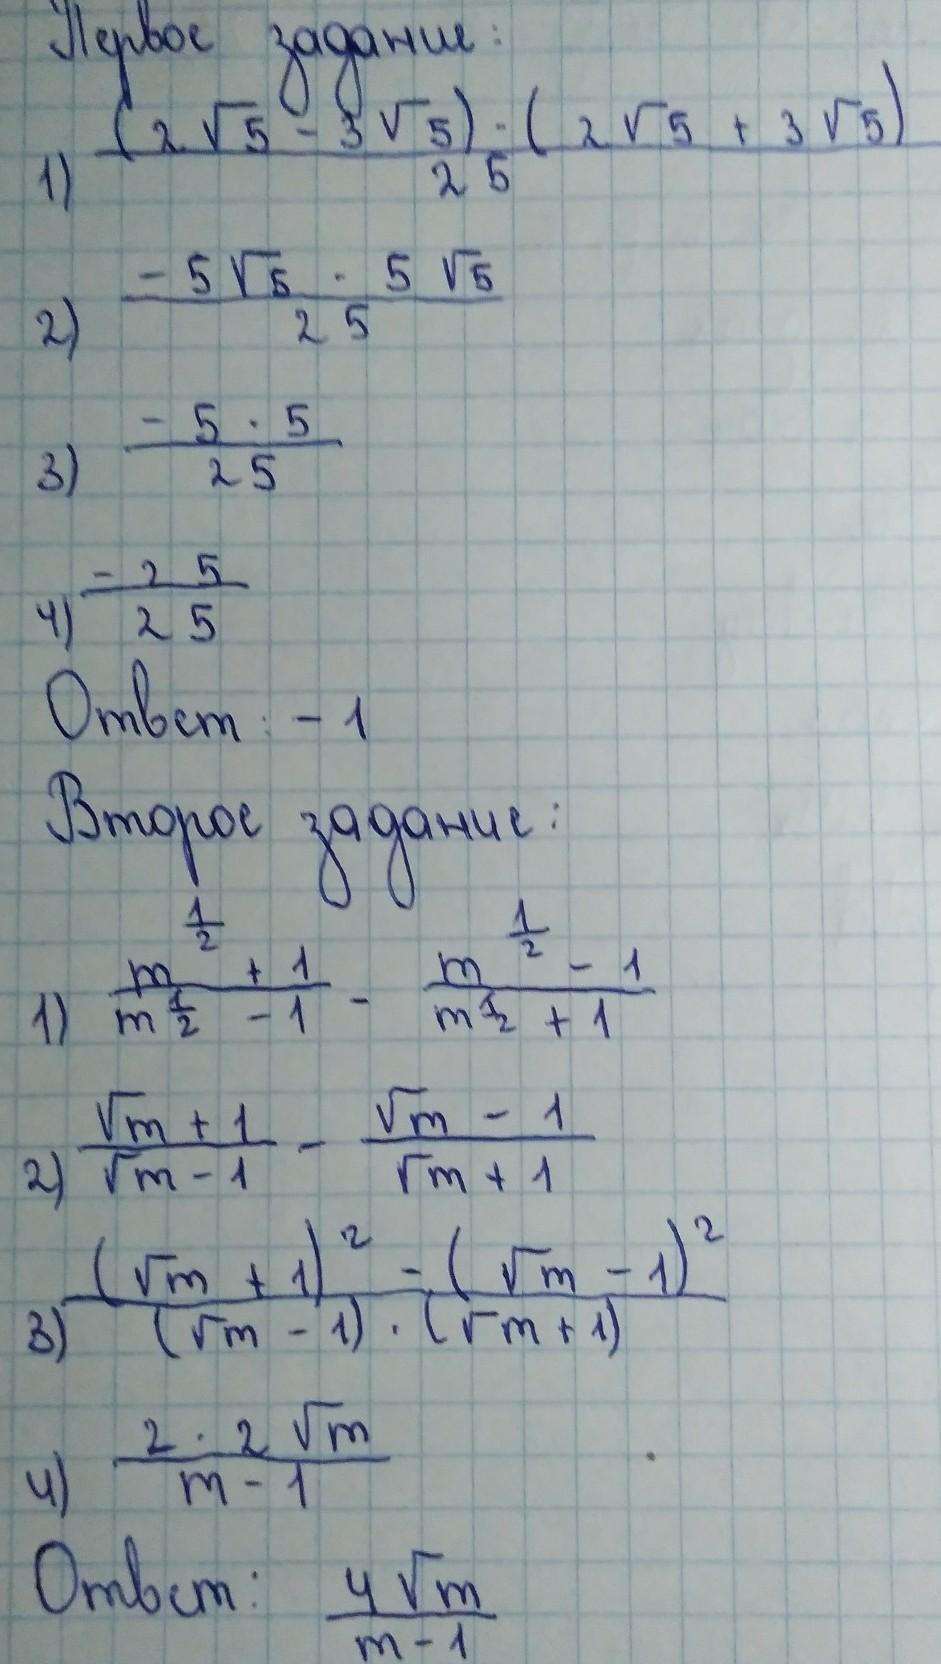 Первое задание:
1) (2√5 - 3√5) · (2√5 + 3√5) / 25
2) -5√5 · 5√5 / 25
3) -5 · 5 / 25
4) -25 / 25
Ответ: -1
Второе задание:
1) m^(1/2) + 1 / m^(1/2) - 1 - m^(1/2) - 1 / m^(1/2) + 1
2) √m + 1 / √m - 1 - √m - 1 / √m + 1
3) (√m + 1)² - (√m - 1)² / (√m - 1) · (√m + 1)
4) 2 · 2√m / m - 1
Ответ: 4√m / m - 1